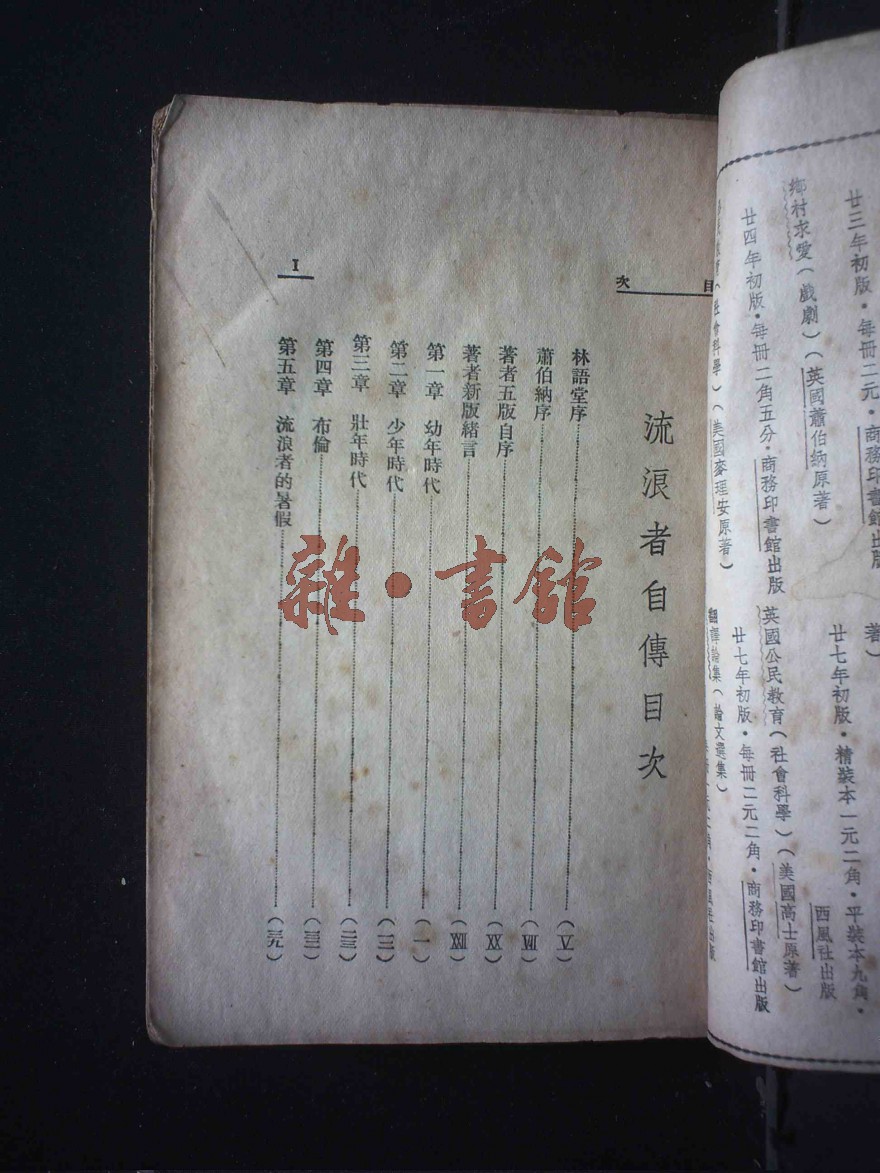 廿三年初版・每冊二元・商務印書館出版
鄉村求愛（戲劇）（英國蕭伯納原著）
廿四年初版・每冊二角五分・商務印書館出版
（社會科學）（美國麥理安原著）
著）
廿七年初版・精裝本一元二角・平裝本九角・
西風社出版
英國公民教育（社會科學）（美國高士原著）
廿七年初版・每冊二元二角・商務印書館出版
翻譯論集（論文選集）
目次
流浪者自傳目次
林語堂序（V）
蕭伯納序（VII）
著者五版自序（XX）
著者新版緒言
第一章 幼年時代（一）
第二章 少年時代
第三章 壯年時代（二三）
第四章 布倫
第五章 流浪者的暑假（三九）
I
雜・書館